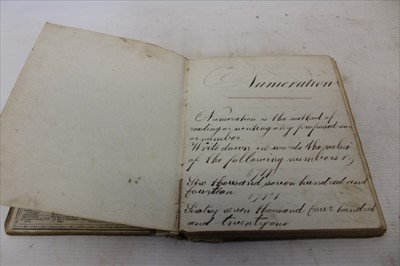 Numeration
Numeration is the method of
reading or writing any proposed
or number.
Write down in words the value
of the following numbers
Six thousand seven hundred and
fourteen
Sixty seven thousand four hundred
and twenty one